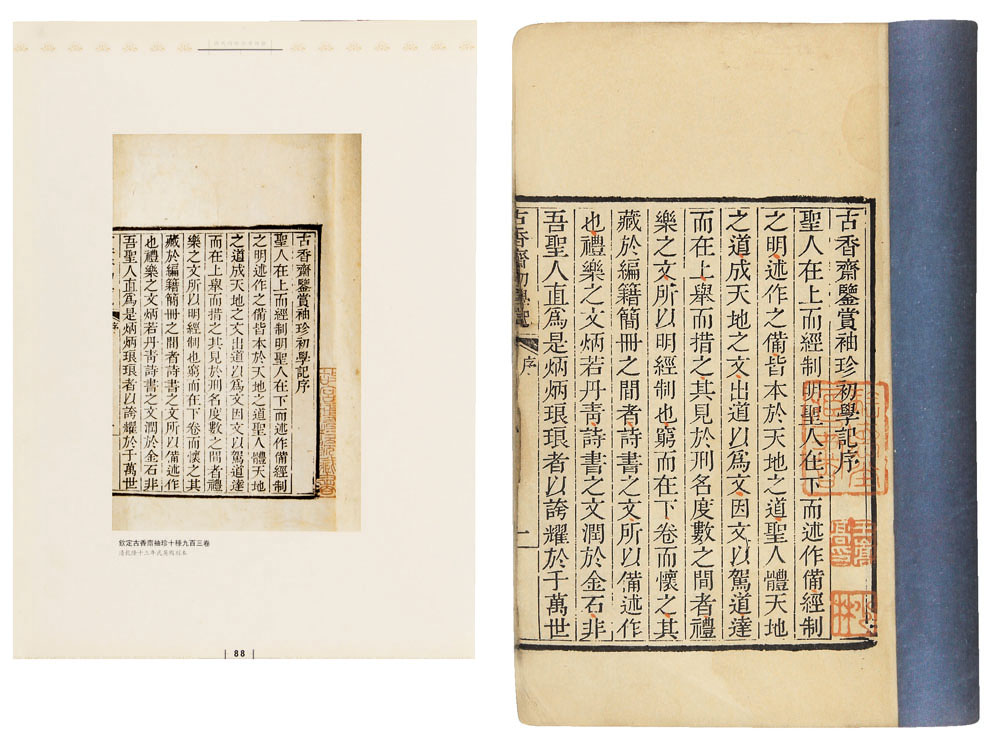 古香齋鑒賞袖珍初學記序
聖人在上而經制明聖人在下而述作備經制
之明述作之備皆本於天地之道聖人體天地
之道成天地之文出道以爲文因文以駕道達
而在上舉而措之其見於刑名度數之間者禮
樂之文所以明經制也窮而在下卷而懷之其
藏於編籍簡冊之間者詩書之文所以備述作
也禮樂之文炳若丹靑詩書之文潤於金石非
吾聖人直爲是炳炳琅琅者以誇耀於千萬世
序
欽定古香齋袖珍十種九百三卷
清乾隆十三年武英殿刻本
88
古香齋鑒賞袖珍初學記序
聖人在上而經制明聖人在下而述作備經制
之明述作之備皆本於天地之道聖人體天地
之道成天地之文出道以爲文因文以駕道達
而在上舉而措之其見於刑名度數之間者禮
樂之文所以明經制也窮而在下卷而懷之其
藏於編籍簡冊之間者詩書之文所以備述作
也禮樂之文炳若丹靑詩書之文潤於金石非
吾聖人直爲是炳炳琅琅者以誇耀於千萬世
古香齋初學記
序
一